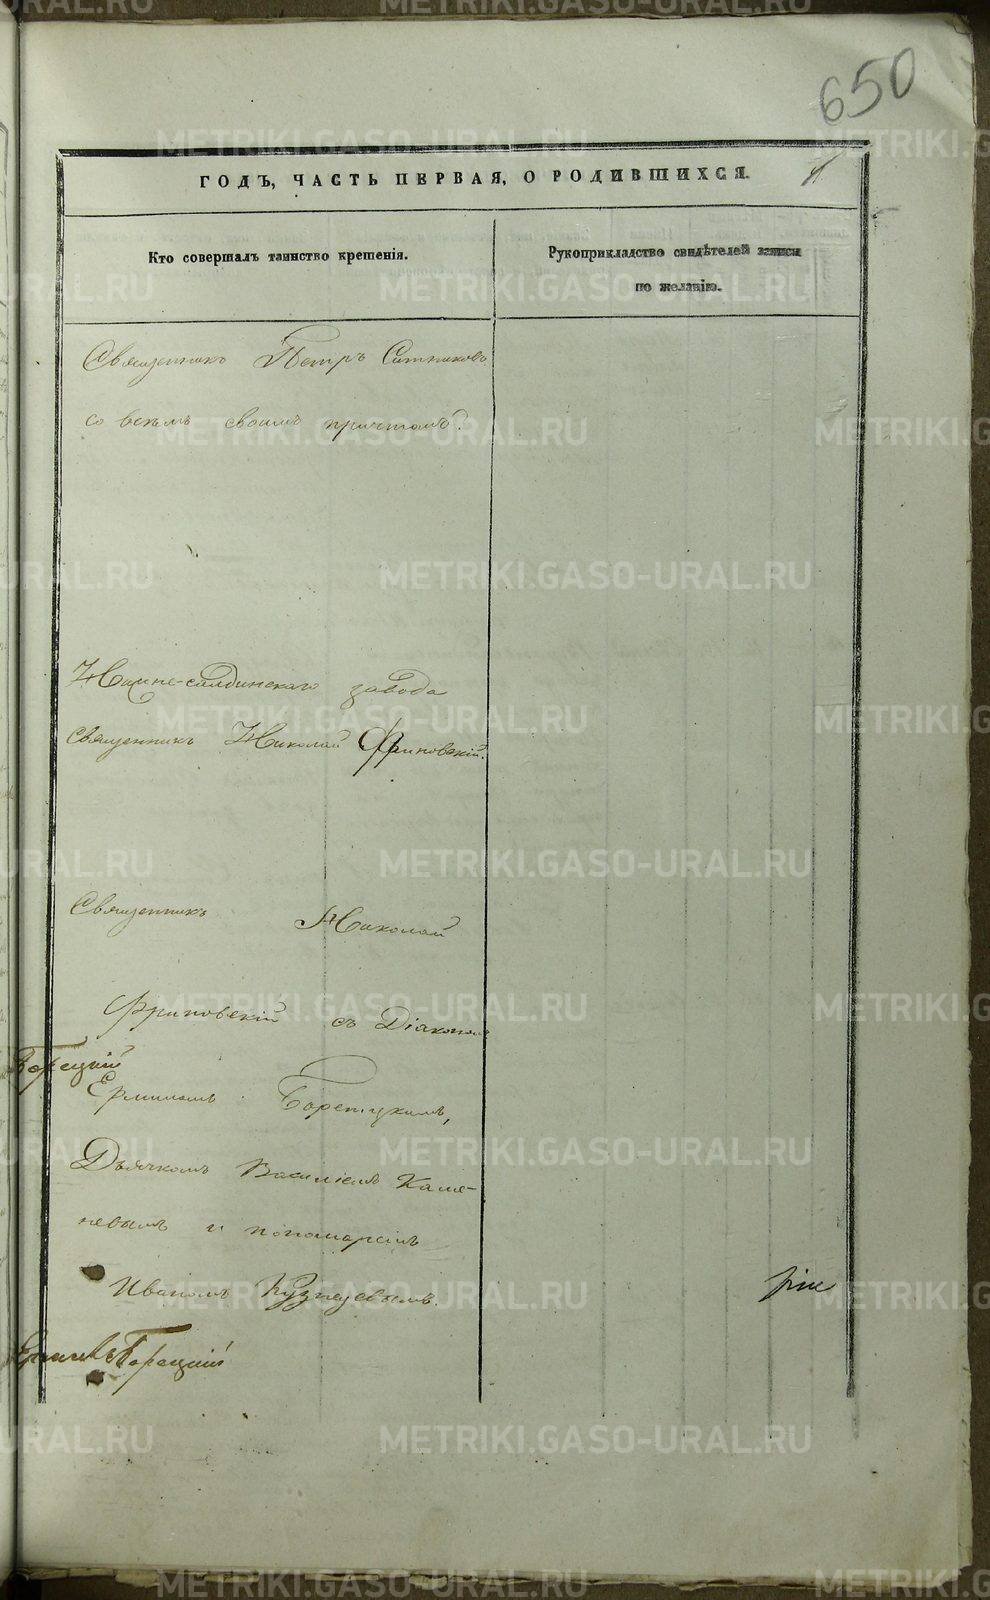 650
ГОДЪ, ЧАСТЬ ПЕРВАЯ, О РОДИВШИХСЯ.
Кто совершалъ таинство крещенія.
Рукоприкладство свидѣтелей записи
по желанію.
Священникъ Петръ Ситниковъ
со всѣмъ своимъ причтомъ.
Нижне-салдинскаго завода
священникъ Николай Фриновскій.
Священникъ Николай
Фриновскій съ Діакономъ
Борецкій
Ерминомъ Борецкимъ,
Дьячкомъ Василіемъ Каме-
невымъ и пономаремъ
Иваномъ Кузнецовымъ.
Борецкій
METRIKI.GASO-URAL.RU